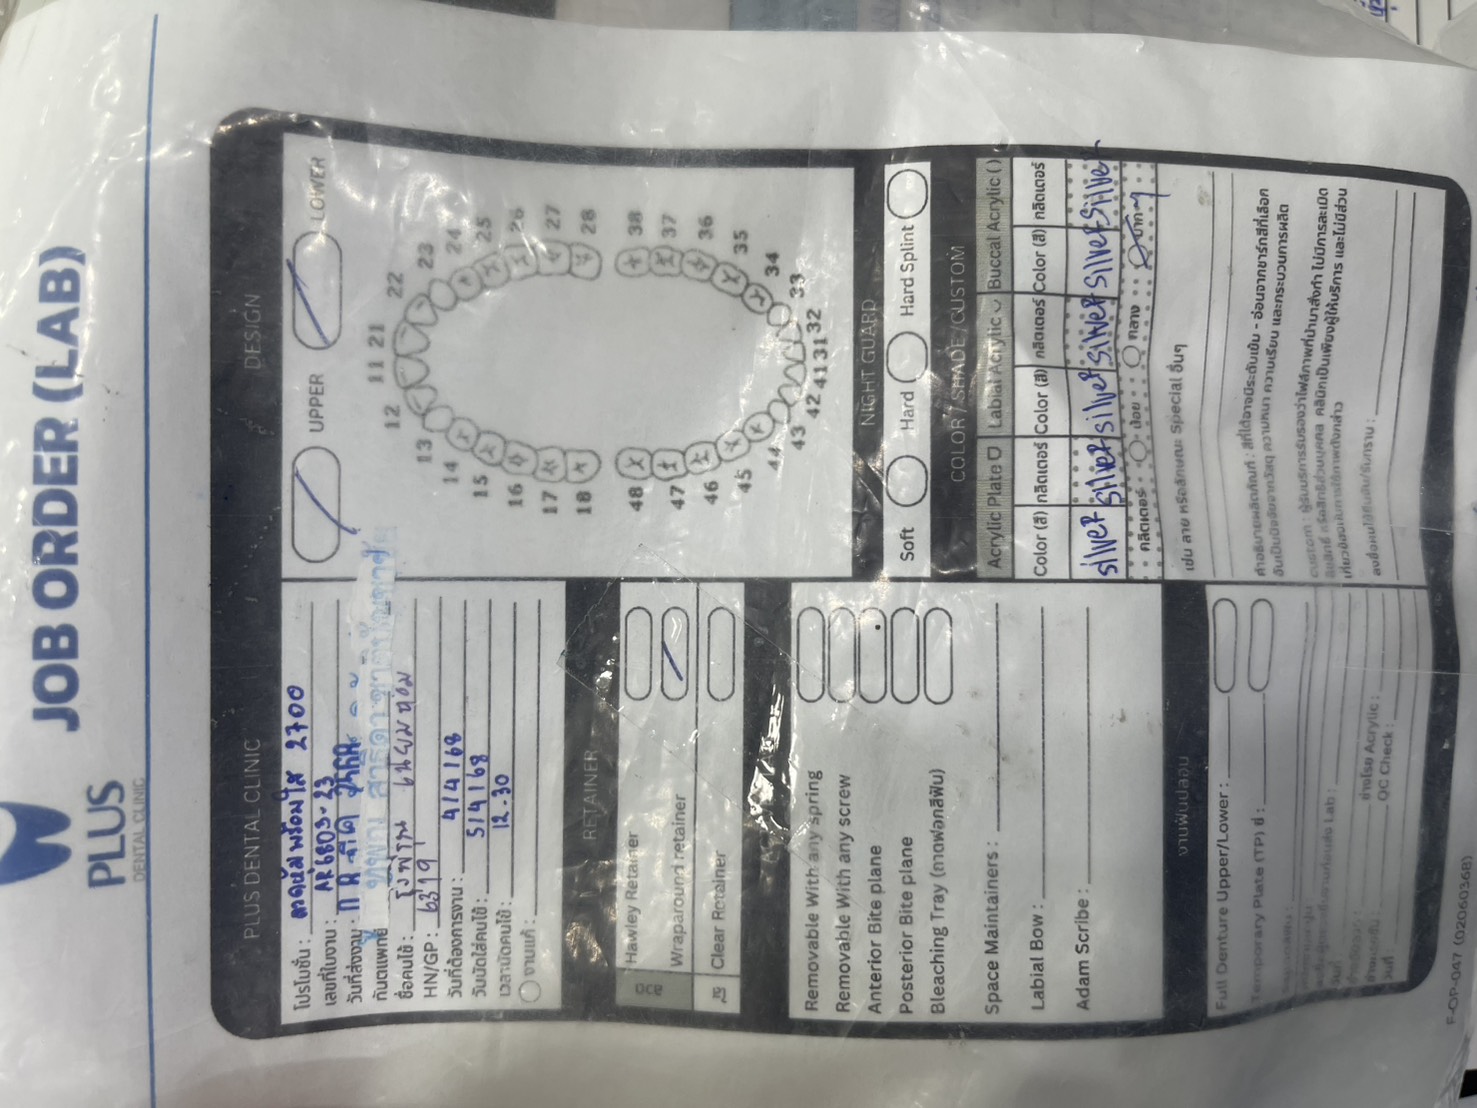 PLUS
DENTAL CLINIC
JOB ORDER (LAB)
PLUS DENTAL CLINIC
โปรโมชั่น : 2700
เลขที่ใบงาน : AR6803-23
วันที่ส่งงาน :
ทันตแพทย์
ชื่อคนไข้ :
HN/GP : 6319
วันที่ต้องการงาน : 4/4/68
วันนัดใส่คนไข้ : 5/4/68
เวลานัดคนไข้ : 12.30
งานแก้ :
RETAINER
ลวด
Hawley Retainer
Wraparound retainer
ใส
Clear Retainer
Removable With any spring
Removable With any screw
Anterior Bite plane
Posterior Bite plane
Bleaching Tray (ถาดฟอกสีฟัน)
Space Maintainers :
Labial Bow :
Adam Scribe :
งานฟันปลอม
Full Denture Upper/Lower :
Temporary Plate (TP) ซี่ :
ช่างโรย Acrylic :
QC Check :
DESIGN
UPPER
LOWER
12 11 21 22
13 23
14 24
15 25
16 26
17 27
18 28
48 38
47 37
46 36
45 35
44 34
43 42 41 31 32 33
NIGHT GUARD
Soft Hard Hard Splint
COLOR / SHADE / CUSTOM
Acrylic Plate Labial Acrylic Buccal Acrylic ( )
Color (สี) กลิตเตอร์ Color (สี) กลิตเตอร์ Color (สี) กลิตเตอร์
silver silver silver silver silver silver
กลิตเตอร์ น้อย กลาง มาก
เช่น ลาย หรือลักษณะ Special อื่นๆ
คำอธิบายผลิตภัณฑ์ : สีที่ได้อาจมีระดับเข้ม - อ่อนจากชาร์กสีที่เลือก
อันเป็นปัจจัยจากวัสดุ ความหนา ความเรียบ และกระบวนการผลิต
Custom : ผู้รับบริการรับรองว่าไฟล์ภาพที่นำมาสั่งทำ ไม่มีการละเมิด
ลิขสิทธิ์ หรือสิทธิ์ส่วนบุคคล คลินิกเป็นเพียงผู้ให้บริการ และไม่มีส่วน
เกี่ยวข้องในการใช้ภาพดังกล่าว
ลงชื่อคนไข้ยืนยัน/รับทราบ :
F-OP-047 (02060368)